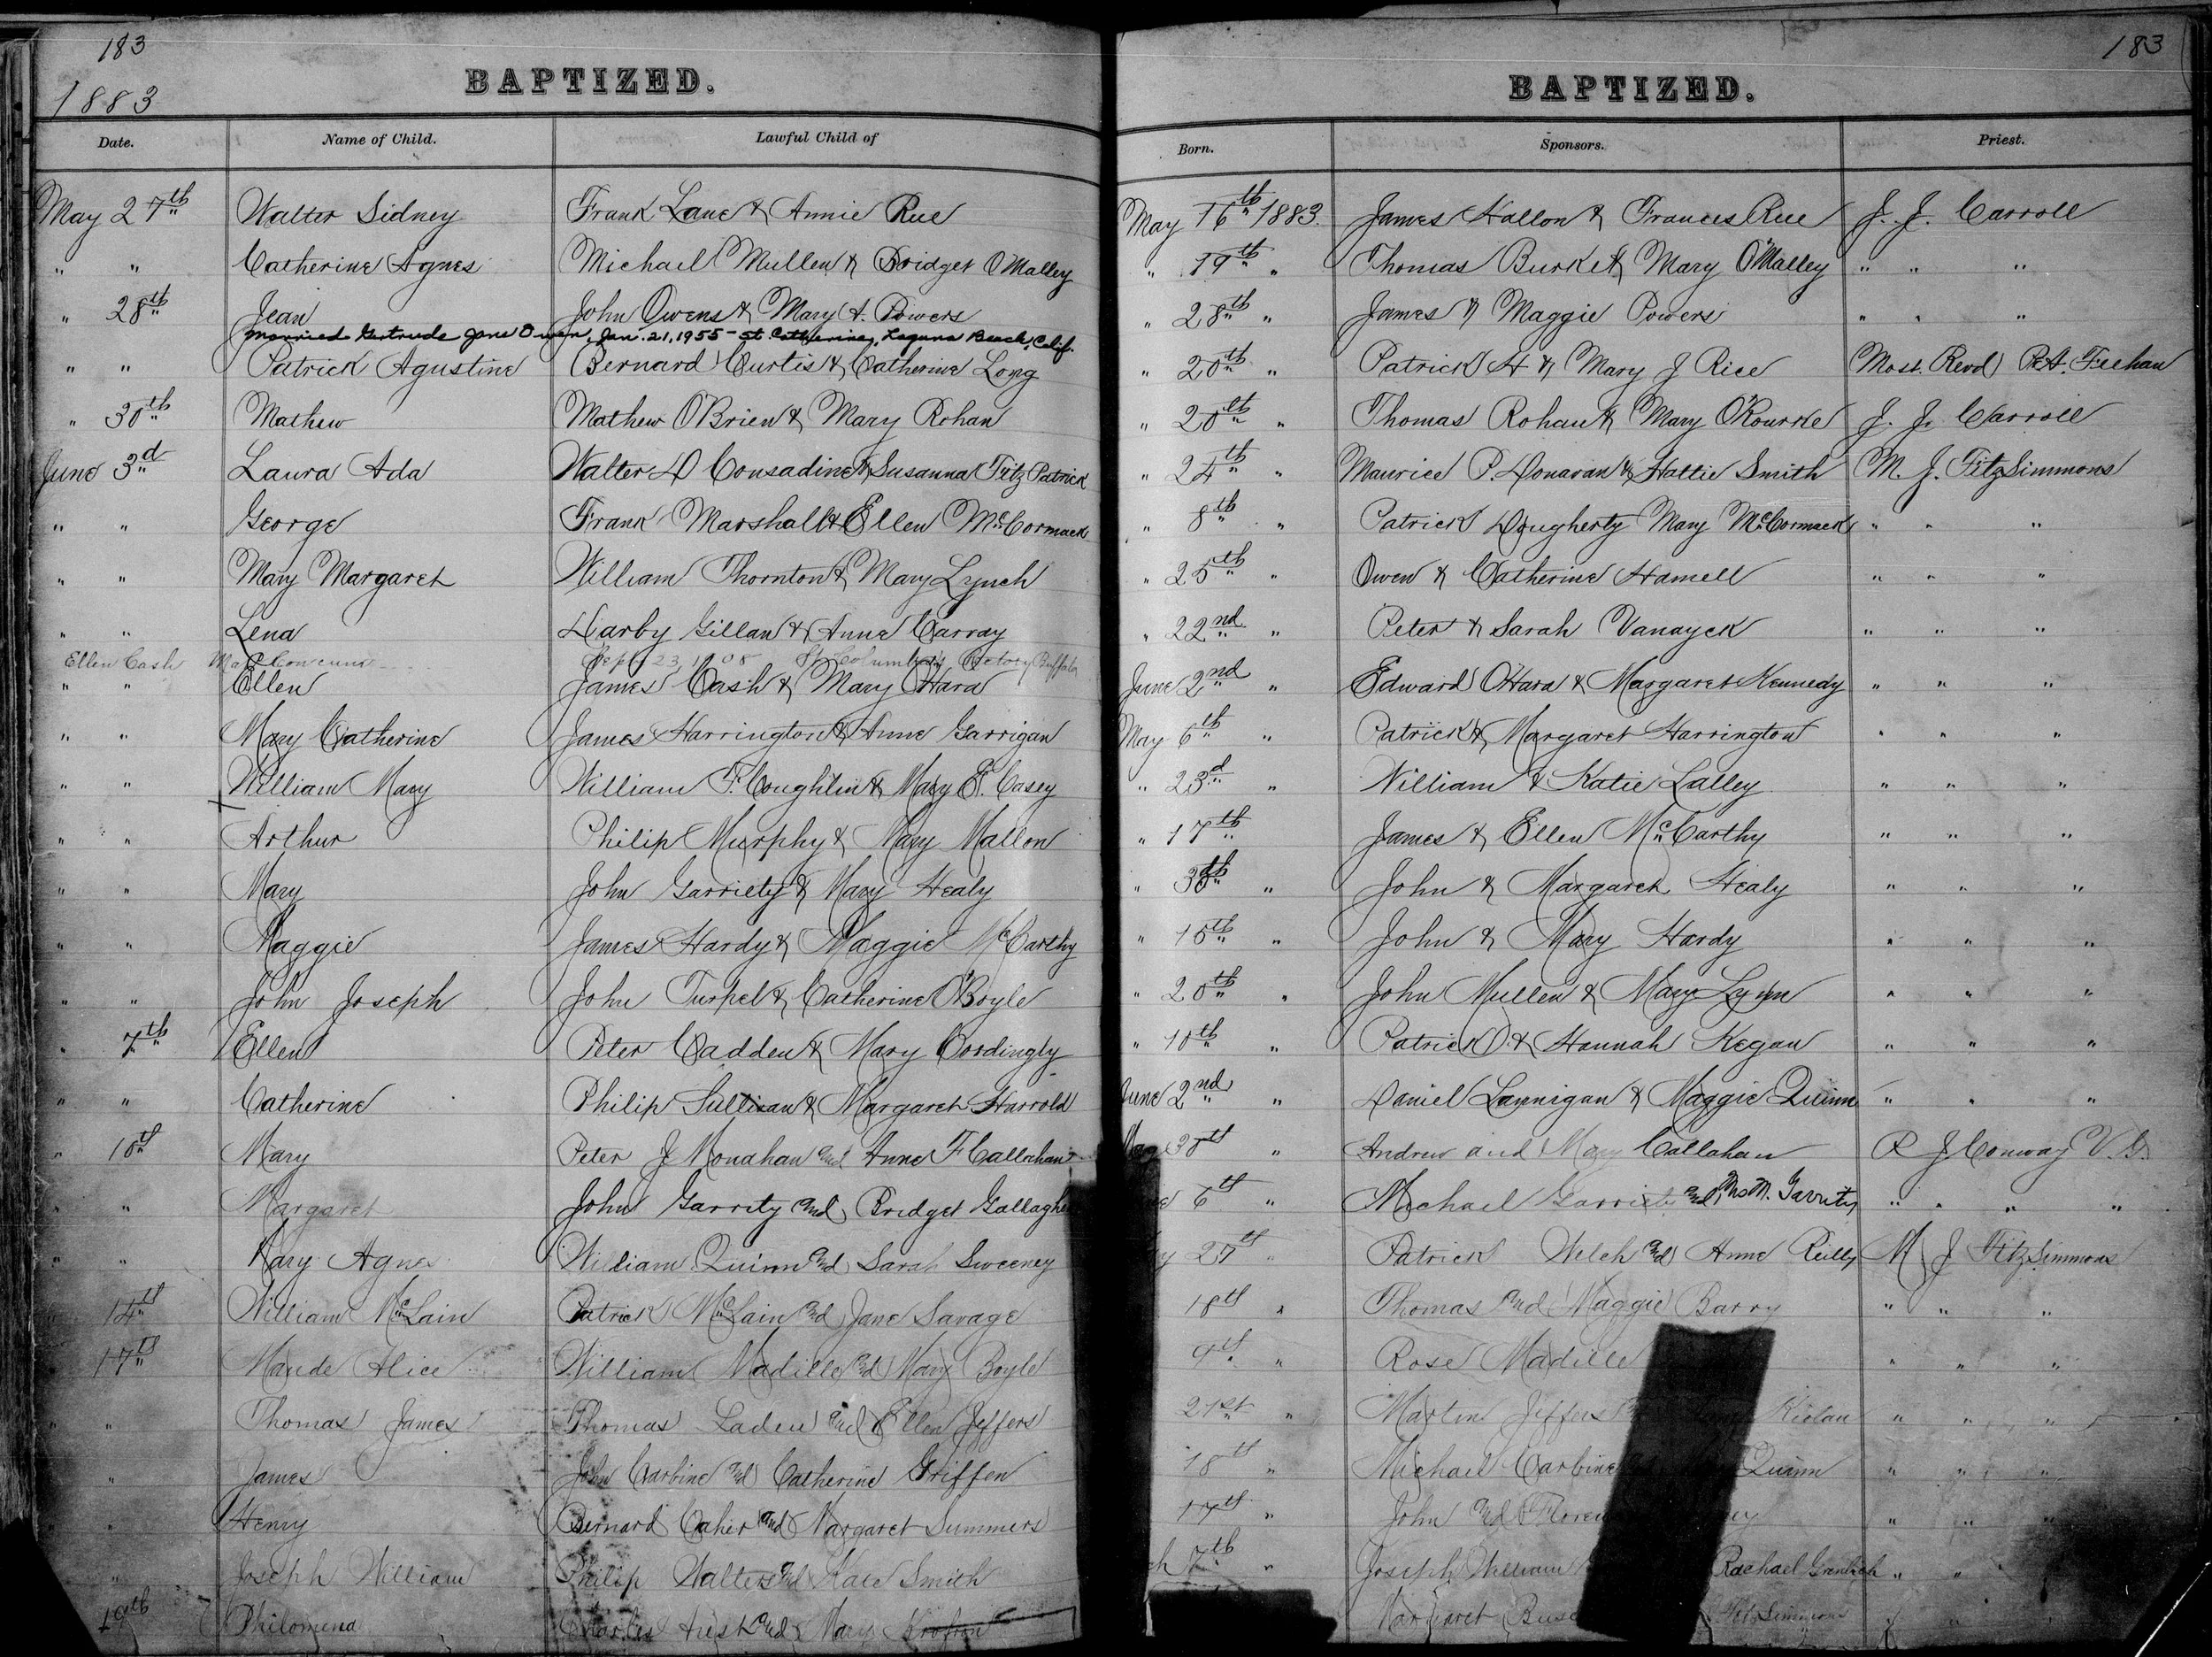 183
1883
BAPTIZED.
Date. Name of Child. Lawful Child of
May 27th Walter Sidney Frank Lane & Annie Rue
" " Catherine Agnes Michael Mullen & Bridget O'Malley
" 28th Jean John Owens & Mary A. Powers
Married Gertrude Jane Owen, Jan. 21, 1955 - St. Catherines, Laguna Beach, Calif.
" " Patrick Agustine Bernard Curtis & Catherine Long
" 30th Mathew Mathew O'Brien & Mary Rohan
June 3d Laura Ada Walter D Consadine & Susanna FitzPatrick
" " George Frank Marshall & Ellen McCormack
" " Mary Margaret William Thornton & Mary Lynch
" " Lena Darby Gillan & Anne Carray
Ellen Cash Sept 23, St Columba's Buffalo
" " Ellen James Cash & Mary O'Hara
" " Mary Catherine James Harrington & Anne Garrigan
" " William Mary William P. Coughlin & Mary E. Casey
" " Arthur Philip Murphy & Mary Mallon
" " Mary John Garriety & Mary Healy
" " Maggie James Hardy & Maggie McCarthy
" " John Joseph John Turpel & Catherine O'Boyle
" 7th Ellen Peter Cadden & Mary Cordingly
" " Catherine Philip Sullivan & Margaret Harrold
" 10th Mary Peter J Monahan and Anne F Callahan
" " Margaret John Garrity and Bridget Gallagher
" " Mary Agnes William Quinn and Sarah Sweeney
14th William McLain Patrick McLain and Jane Savage
17th Maude Alice William Madille and Mary Boyle
" " Thomas James Thomas Laden and Ellen Jeffers
" James John Carbine and Catherine Griffen
" Henry Bernard Caher and Margaret Summers
" Joseph William Philip Walters and Kate Smith
19th Philomena Charles and Mary
183
BAPTIZED.
Born. Sponsors. Priest.
May 16th 1883 James Hallon & Frances Rue J. J. Carroll
" 19th " Thomas Burke & Mary O'Malley " " "
" 28th " James & Maggie Powers " " "
" 20th " Patrick H & Mary J Rice Most. Revd P.A. Feehan
" 20th " Thomas Rohan & Mary O'Rourke J. J. Carroll
" 24th " Maurice P. Donavan & Hattie Smith M. J. FitzSimmons
" 8th " Patrick Dougherty Mary McCormack " " "
" 25th " Owen & Catherine Hamell " " "
" 22nd " Peter & Sarah Vanayck " " "
June 2nd " Edward O'Hara & Margaret Kennedy " " "
May 6th " Patrick & Margaret Harrington " " "
" 23d " William & Katie Lalley " " "
" 17th " James & Ellen McCarthy " " "
" 30th " John & Margaret Healy " " "
" 15th " John & Mary Hardy " " "
" 20th " John Mullen & Mary Lynn " " "
" 10th " Patrick & Hannah Kegan " " "
June 2nd " Daniel Lannigan & Maggie Quinn " " "
May 30th " Andrew and Mary Callahan P J Conway V. G.
6th " Michael Garrity and Mrs M. Garrity " " " "
27th " Patrick Welch and Anne Reilly M J FitzSimmons
18th " Thomas and Maggie Barry " " "
9th " Rose Madille " " "
21st " Martin Jeffers " " "
18th " Michael Carbine Quinn " " "
17th " John and " " "
7th " Joseph William Rachael " "
Margaret FitzSimmons